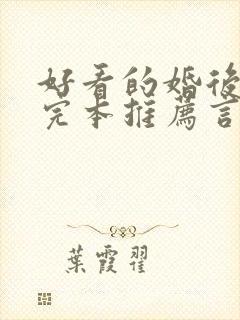 好看的婚後
完本推薦言
葉霞翟